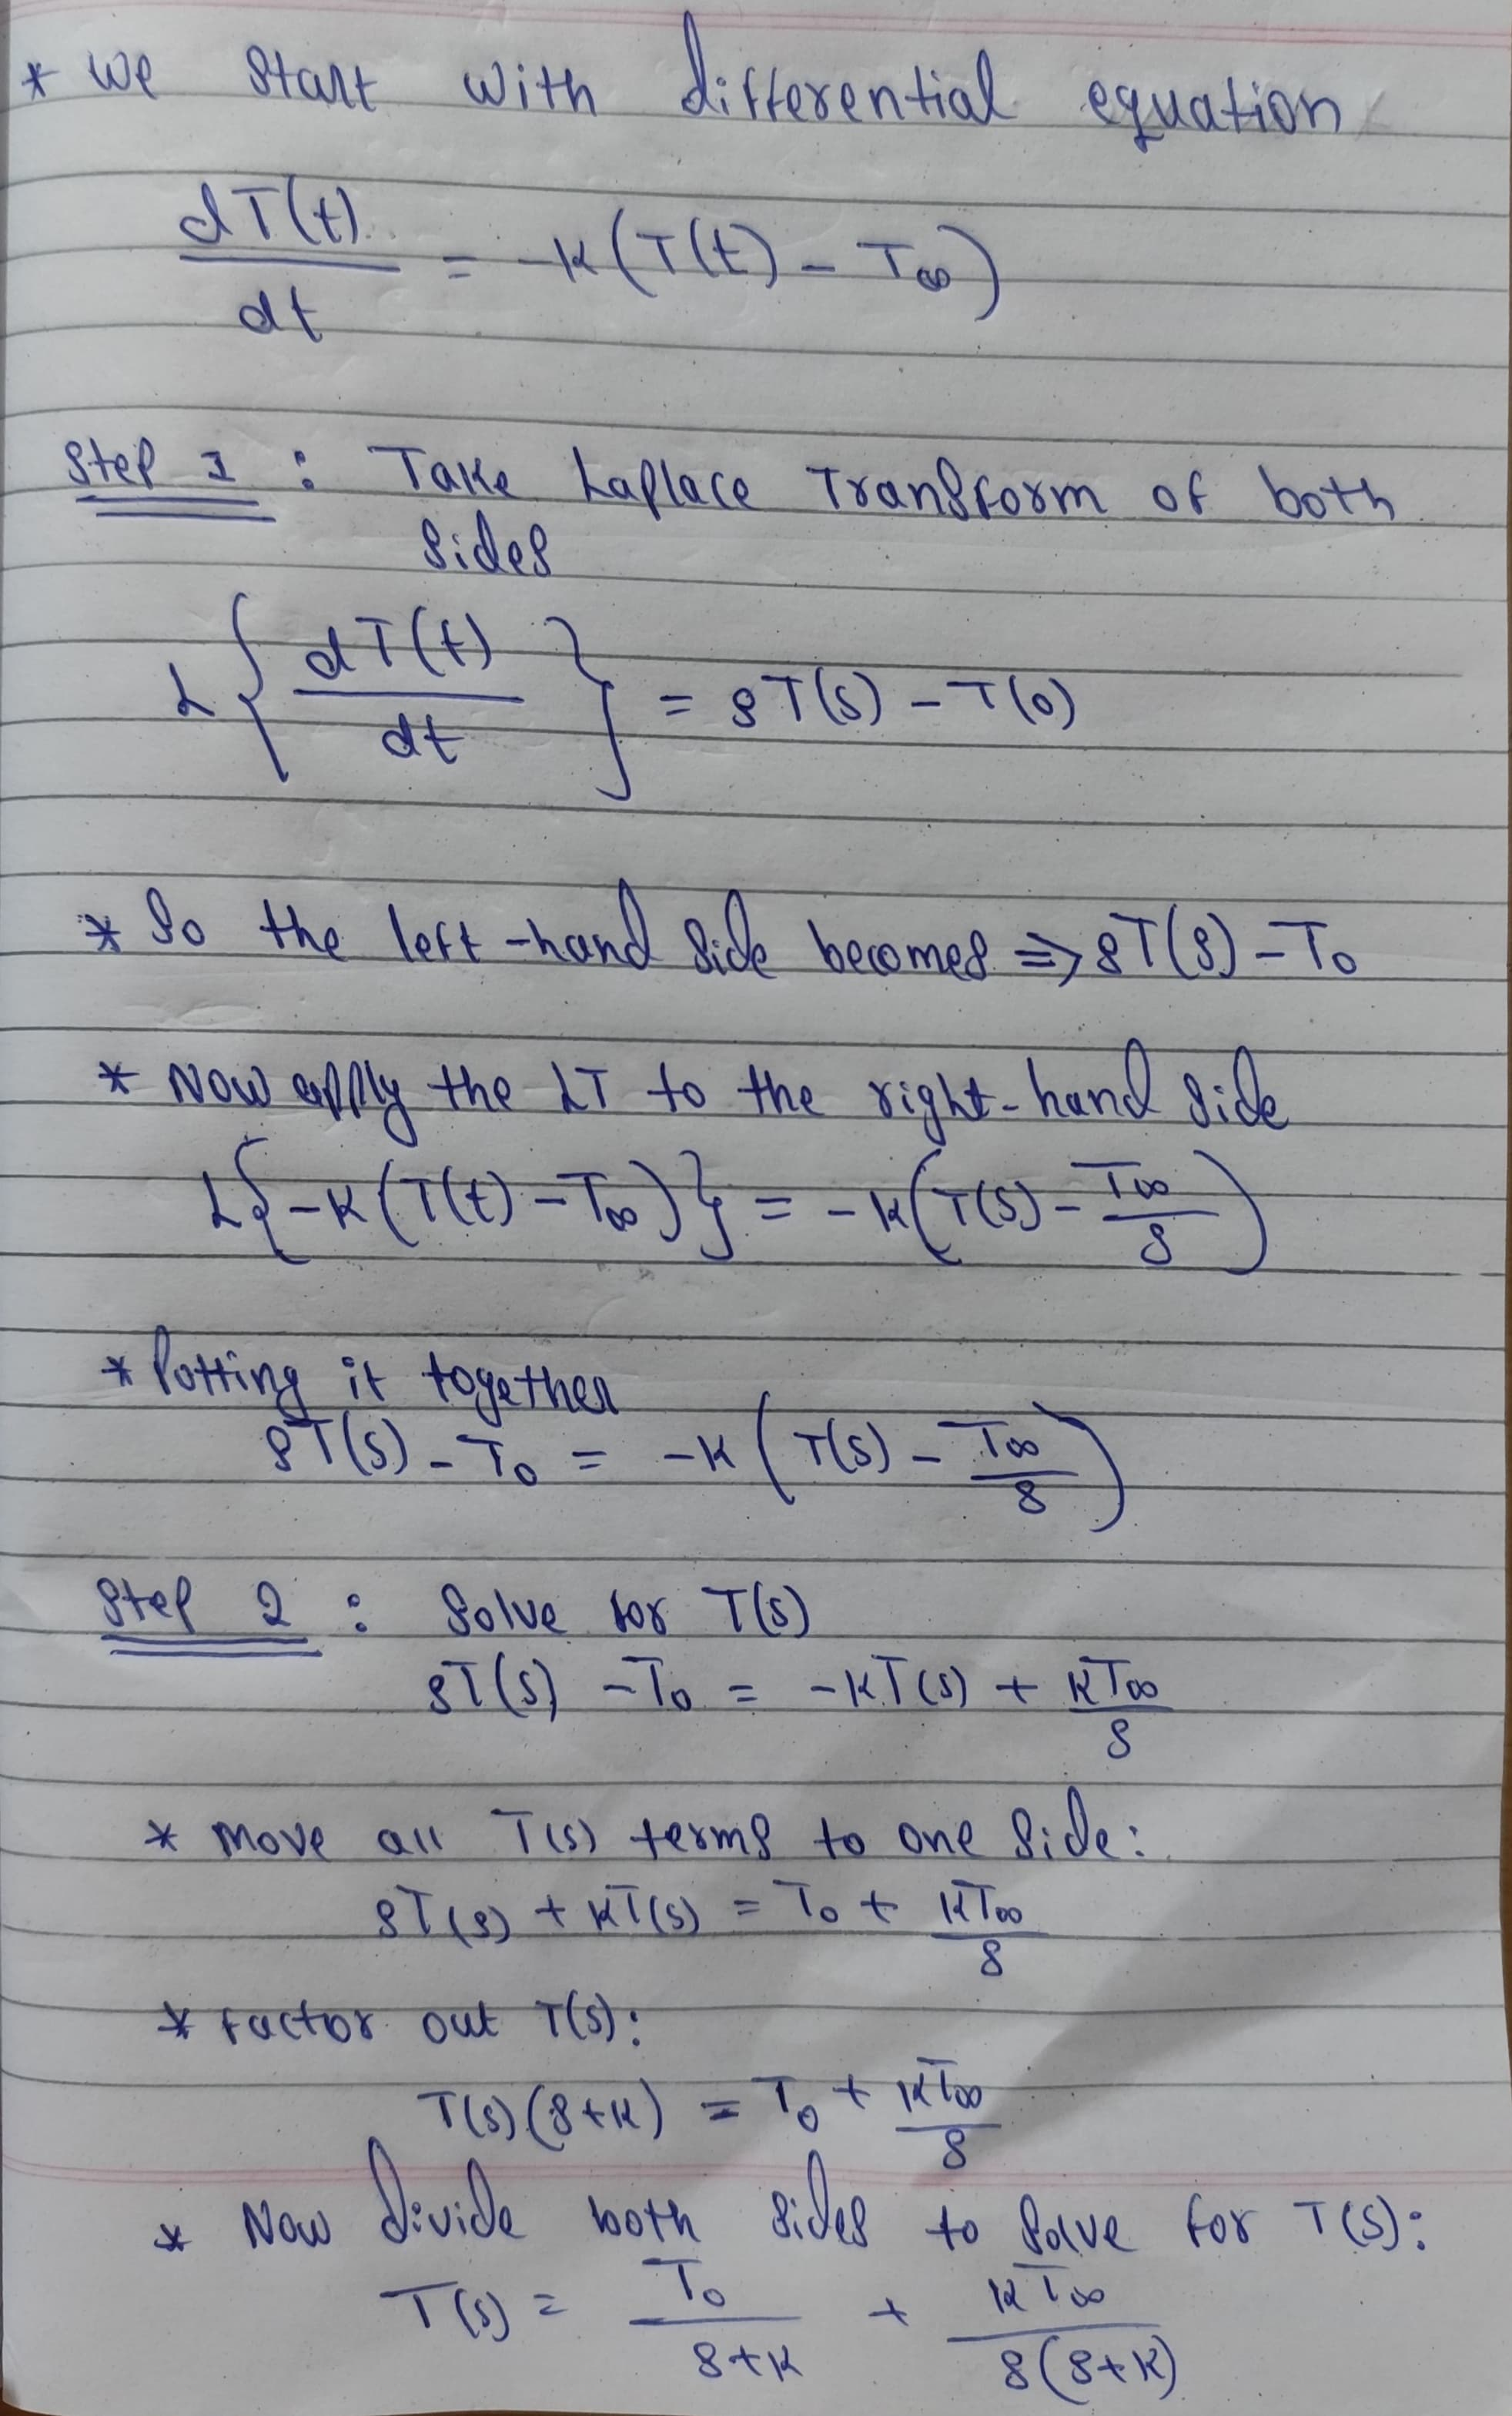 * We start with differential equation
dT(t)/dt = -K(T(t) - T∞)
Step 1 : Take Laplace Transform of both
sides
L{dT(t)/dt} = sT(s) - T(0)
* So the left-hand side becomes ⇒ sT(s) - T₀
* Now apply the LT to the right-hand side
L{-K(T(t) - T∞)} = -K(T(s) - T∞/s)
* Putting it together
sT(s) - T₀ = -K(T(s) - T∞/s)
Step 2 : Solve for T(s)
sT(s) - T₀ = -KT(s) + KT∞/s
* Move all T(s) terms to one side:
sT(s) + KT(s) = T₀ + KT∞/s
* Factor out T(s):
T(s)(s+K) = T₀ + KT∞/s
* Now divide both sides to solve for T(s):
T(s) = T₀/(s+K) + KT∞/(s(s+K))